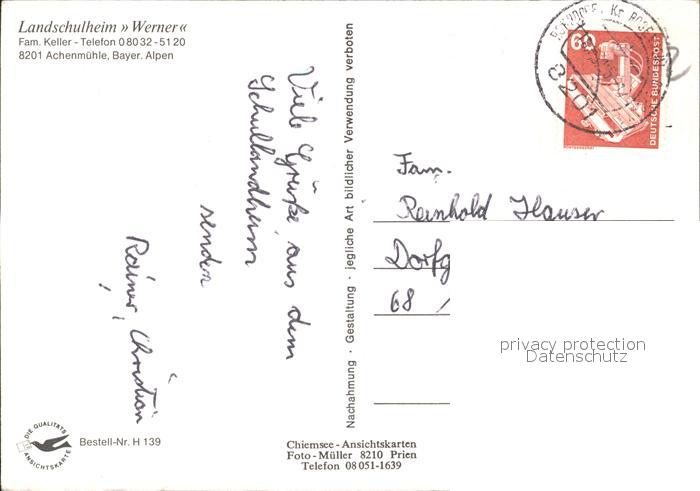 Landschulheim » Werner «
Fam. Keller - Telefon 0 80 32 - 51 20
8201 Achenmühle, Bayer. Alpen
Viele Grüße aus dem
Schullandheim
senden
Rainer, Christian
DIE QUALITÄTS
ANSICHTSKARTE
Bestell-Nr. H 139
Nachahmung · Gestaltung · jegliche Art bildlicher Verwendung verboten
Chiemsee - Ansichtskarten
Foto - Müller 8210 Prien
Telefon 08 051-1639
60
DEUTSCHE BUNDESPOST
8201
Fam.
Reinhold Hauser
Dorfg
68
privacy protection
Datenschutz